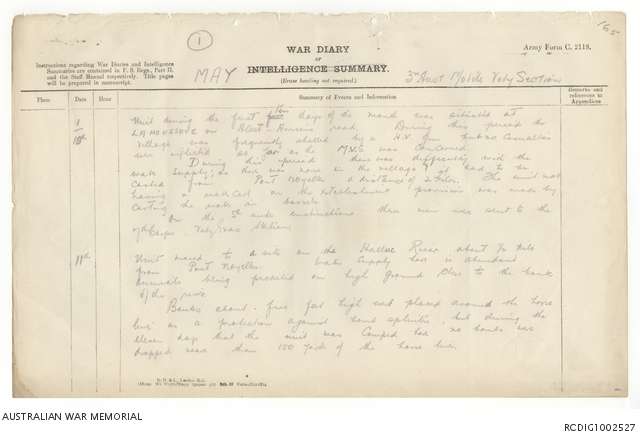 165
1
WAR DIARY
OF
INTELLIGENCE SUMMARY.
(Erase heading not required.)
Army Form C. 2118.
Instructions regarding War Diaries and Intelligence
Summaries are contained in F. S. Regs., Part II.
and the Staff Manual respectively. Title pages
will be prepared in manuscript.
MAY
3rd Aust Mobile Vety Section
Place
Date
Hour
Summary of Events and Information
Remarks and
references to
Appendices
1
10th
Unit during the first ten days of the month was situated at
LA on Albert Amiens road. During this period the
village was frequently shelled by a H.V. gun but no casualties
were inflicted as far as the M.V.S was concerned.
During this period there was difficulty with the
water supply, as there was none in the village & had to be
carted from Pont Noyelles a distance of 2 miles. The unit not
having a on the establishment provision was made by
carting the water in barrels
On the 5th under instructions three men were sent to the
Corps Vety Station
11th
Unit moved to a site on the Hallue River about ½ mile
from Pont Noyelles. Water supply here is abundant
being provided on high ground close to the bank
of the river
Banks about five feet high were placed around the horse
lines as a protection against bomb splinters, but during the
eleven days that the unit was camped here no bombs were
dropped nearer than 150 yards of the horse lines.
AUSTRALIAN WAR MEMORIAL
RCDIG1002527